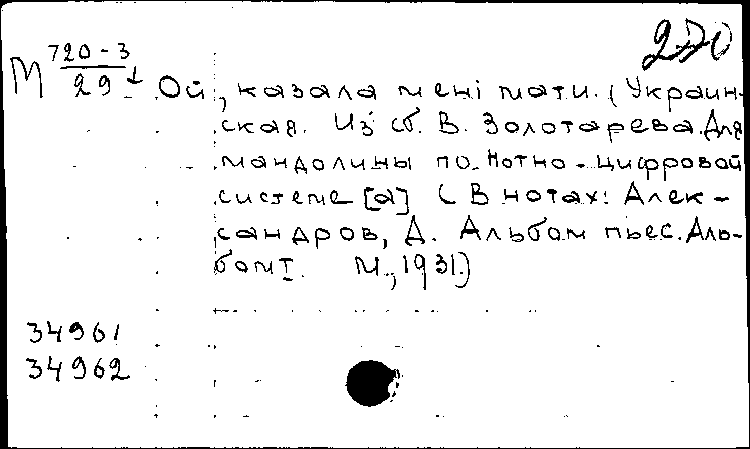 270
М 720-3
29
Ой, казала мені мати. (Украин-
ская. Из сб. В. Золотарева. Для
мандолины по нотно-цифровой
системе [а] (В нотах: Алек-
сандров, Д. Альбом пьес. Аль-
бом I. М., 1931.)
34961
34962